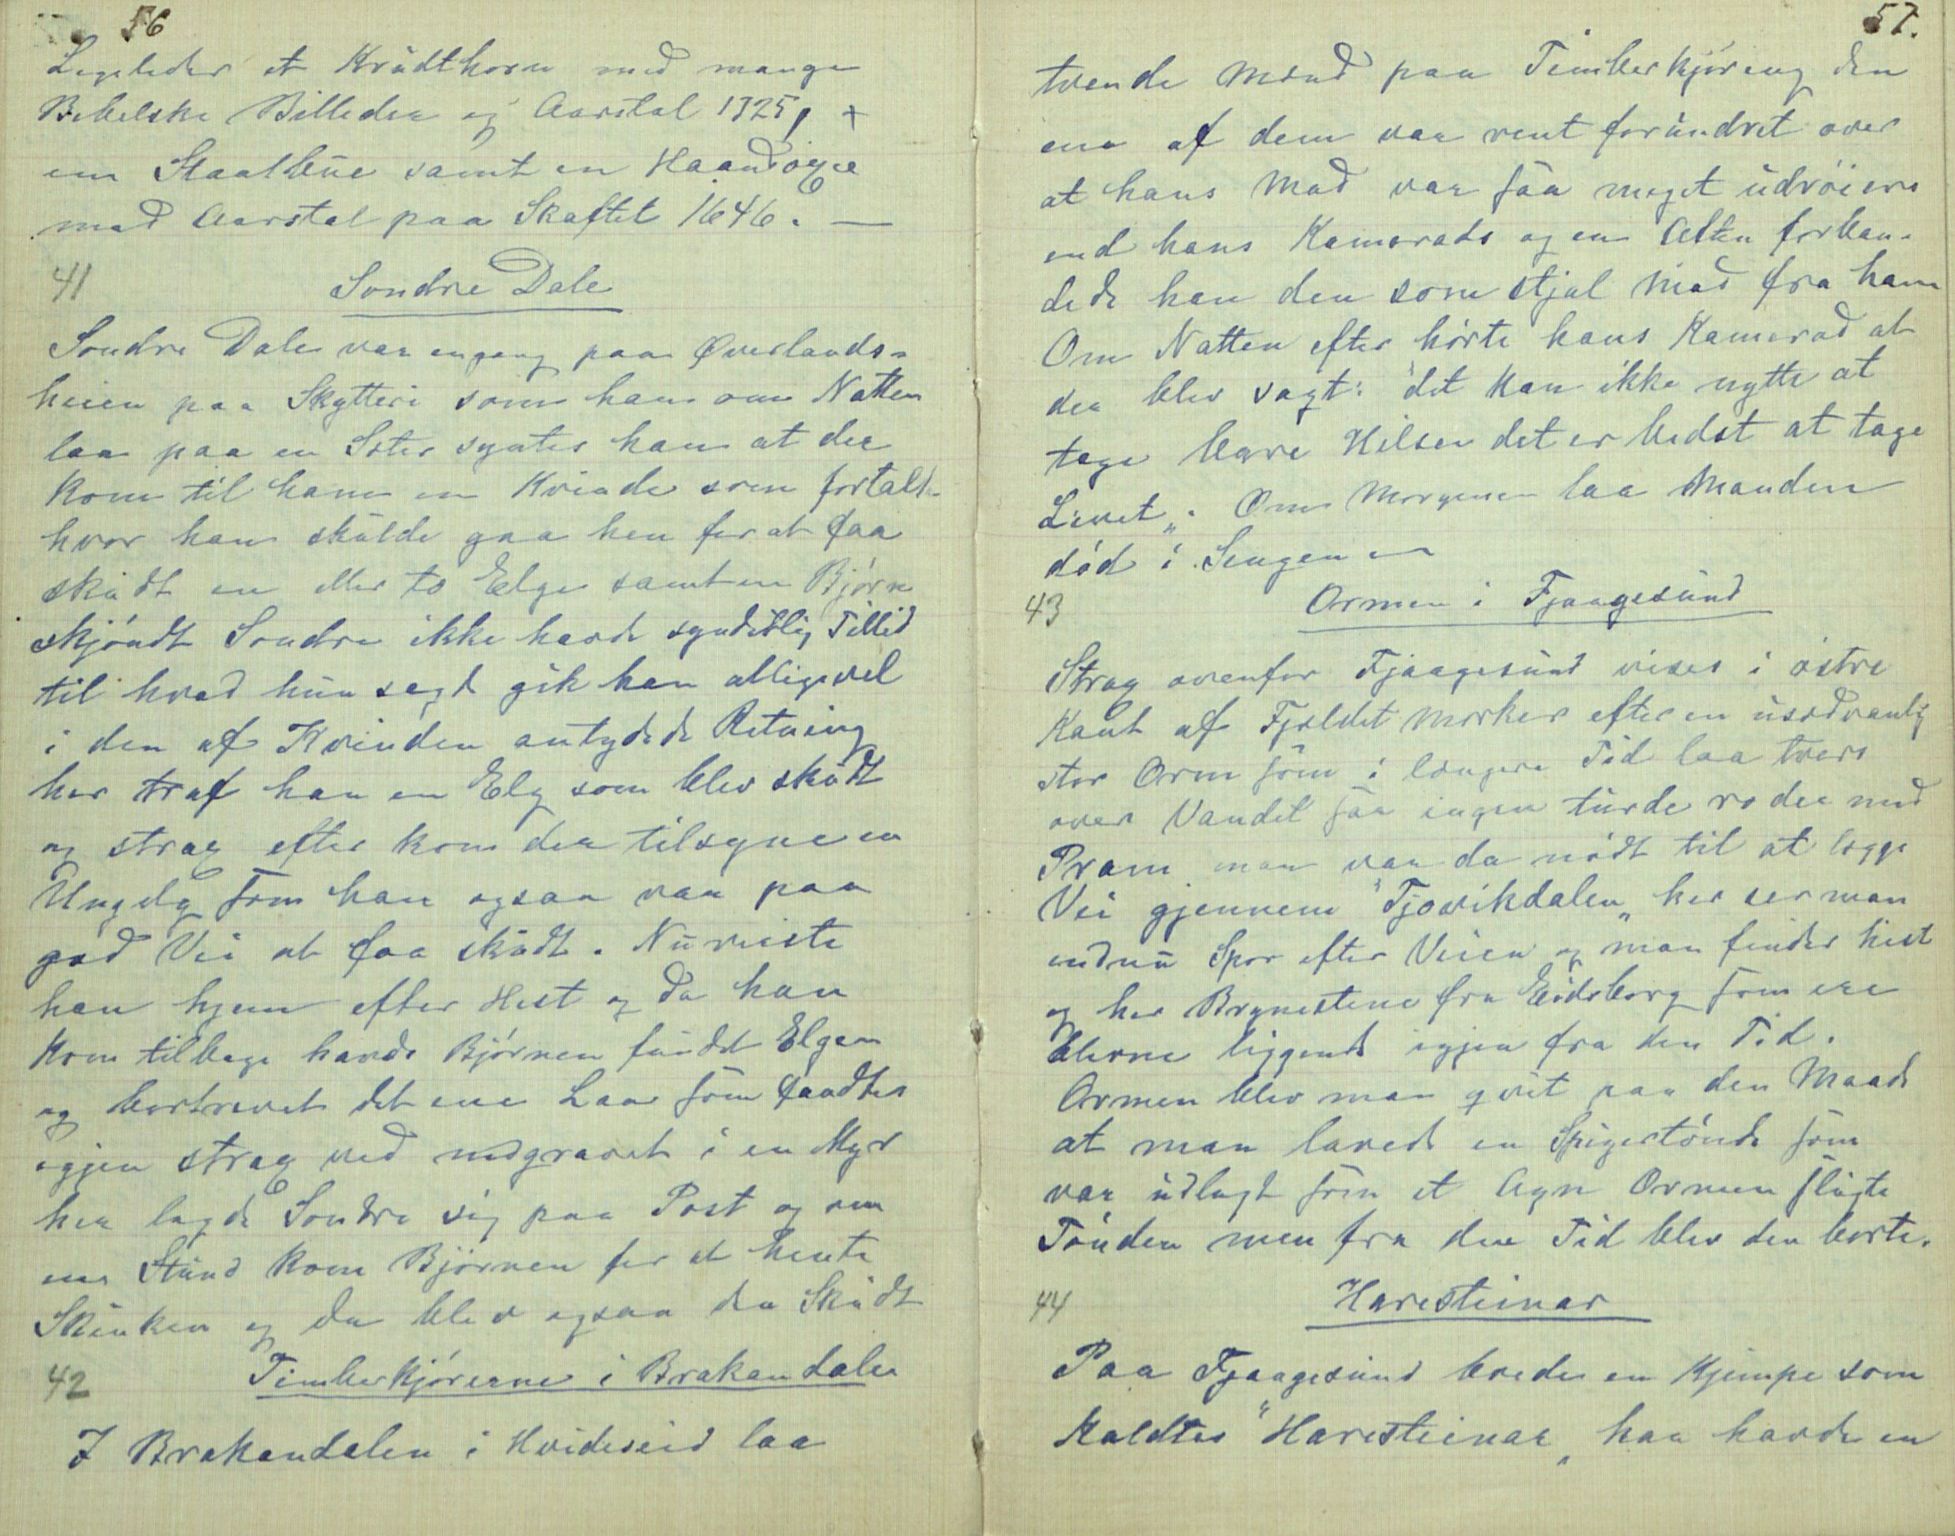 56
Legeledes et Krudthorn med mange
Bibelske Billeder og Aarstal 1725, +
en Staalbue samt en Haandøgse
med Aarstal paa Skaftet 1646. —
41 Sondre Dale
Sondre Dale var engang paa Øverlands-
heien paa Skytteri som han om Natten
laa paa en Sæter syntes han at der
kom til ham en Kvinde som fortalte
hvor han skulde gaa hen for at faa
skudt en eller to Elge samt en Bjørn
skjøndt Sondre ikke havde synderlig Tillid
til hvad hun sagd gik han alligevel
i den af Kvinden antydede Retning
her traf han en Elg som blev skudt
og strax efter kom der tilsyne en
Ungelg som han ogsaa var paa
god Vei at faa skudt. Nu reiste
han hjem efter Hest og da han
kom tilbage havde Bjørnen fundet Elgen
og bortrevet det ene Laar som fandtes
igjen strax ved nedgravet i en Myr
her lagde Sondre sig paa Post og om
en Stund kom Bjørnen for at hente
Skinken og da blev ogsaa den Skudt
42 Timberkjørerne i Brakandalen
I Brakandalen i Hvideseid laa
57.
tvende Mænd paa Timberkjøring den
ene af dem var rent forundret over
at hans Mad var saa meget udrøiere
end hans Kamerads og en Aften forban-
dede han den som stjal Mad fra ham
Om Natten efter hørte hans Kamerad at
der blev sagt: "det kan ikke nytte at
tage bare Hilsen det er bedst at tage
Livet„. Om Morgenen laa Manden
død i Sengen —
43 Ormen i Fjaagesund
Strax ovenfor Fjaagesund vises i østre
Kant af Fjeldet Mærker efter en usædvanlig
stor Orm som i længere Tid laa tvers
over Vandet saa ingen turde ro der med
Pram man var da nødt til at lægge
Vei gjennem "Tjovikdalen„ her ser man
endnu Spor efter Veien og man finder hist
og her Brynestene fra Eidsborg som ere
blevne liggende igjen fra den Tid.
Ormen blev man qvit paa den Maade
at man lavede en Spigertønde som
var udlagt som et Agn Ormen slugte
Tønden men fra den Tid blev den borte.
44 Haresteinar
Paa Fjaagesund boede en Kjæmpe som
kaldtes "Haresteinar„ han havde en